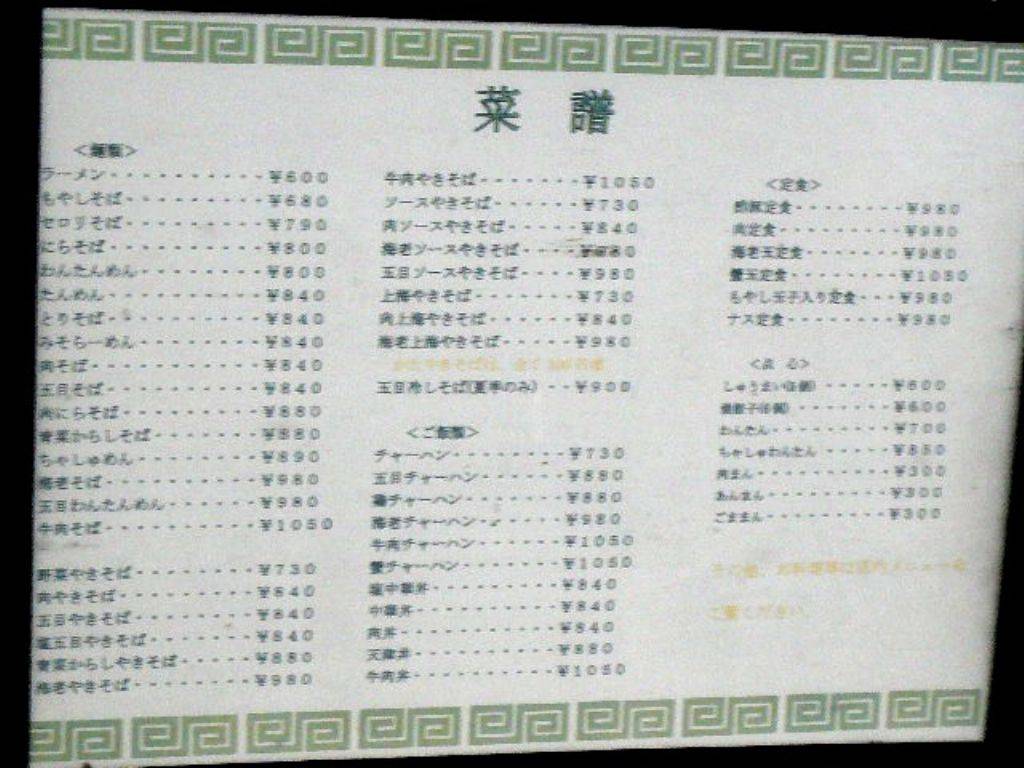 菜 譜
<麺類>
ラーメン・・・・・・・・・・¥600
もやしそば・・・・・・・・・¥680
セロリそば・・・・・・・・・¥790
にらそば・・・・・・・・・・¥800
わんたんめん・・・・・・・・¥800
たんめん・・・・・・・・・・¥840
とりそば・・・・・・・・・・¥840
みそらーめん・・・・・・・・¥840
肉そば・・・・・・・・・・・¥840
五目そば・・・・・・・・・・¥840
肉にらそば・・・・・・・・・¥880
青菜からしそば・・・・・・・¥880
ちゃしゅめん・・・・・・・・¥890
海老そば・・・・・・・・・・¥980
五目わんたんめん・・・・・・¥980
牛肉そば・・・・・・・・・・¥1050
野菜やきそば・・・・・・・・¥730
肉やきそば・・・・・・・・・¥840
五目やきそば・・・・・・・・¥840
塩五目やきそば・・・・・・・¥840
青菜からしやきそば・・・・・¥880
海老やきそば・・・・・・・・¥980
牛肉やきそば・・・・・・・¥1050
ソースやきそば・・・・・・¥730
肉ソースやきそば・・・・・¥840
海老ソースやきそば・・・・
五目ソースやきそば・・・・¥980
上海やきそば・・・・・・・¥730
肉上海やきそば・・・・・・¥840
海老上海やきそば・・・・・¥980
五目冷しそば(夏季のみ)・・¥900
<ご飯類>
チャーハン・・・・・・・・¥730
五目チャーハン・・・・・・¥880
チャーハン・・・・・・・¥880
海老チャーハン・・・・・・¥980
牛肉チャーハン・・・・・・¥1050
蟹チャーハン・・・・・・・¥1050
塩中華丼・・・・・・・・・¥840
中華丼・・・・・・・・・・¥840
肉丼・・・・・・・・・・・¥840
天津丼・・・・・・・・・・¥880
牛肉丼・・・・・・・・・・¥1050
<定食>
酢豚定食・・・・・・・・¥980
肉定食・・・・・・・・・¥980
海老玉定食・・・・・・・¥980
蟹玉定食・・・・・・・・¥1050
もやし玉子入り定食・・・¥980
ナス定食・・・・・・・・¥980
<点 心>
しゅうまい・・・・・¥600
・・・・・・・¥600
わんたん・・・・・・・・¥700
ちゃしゅわんたん・・・・・¥850
肉まん・・・・・・・・・¥300
あんまん・・・・・・・・¥300
ごままん・・・・・・・・¥300
ご覧ください